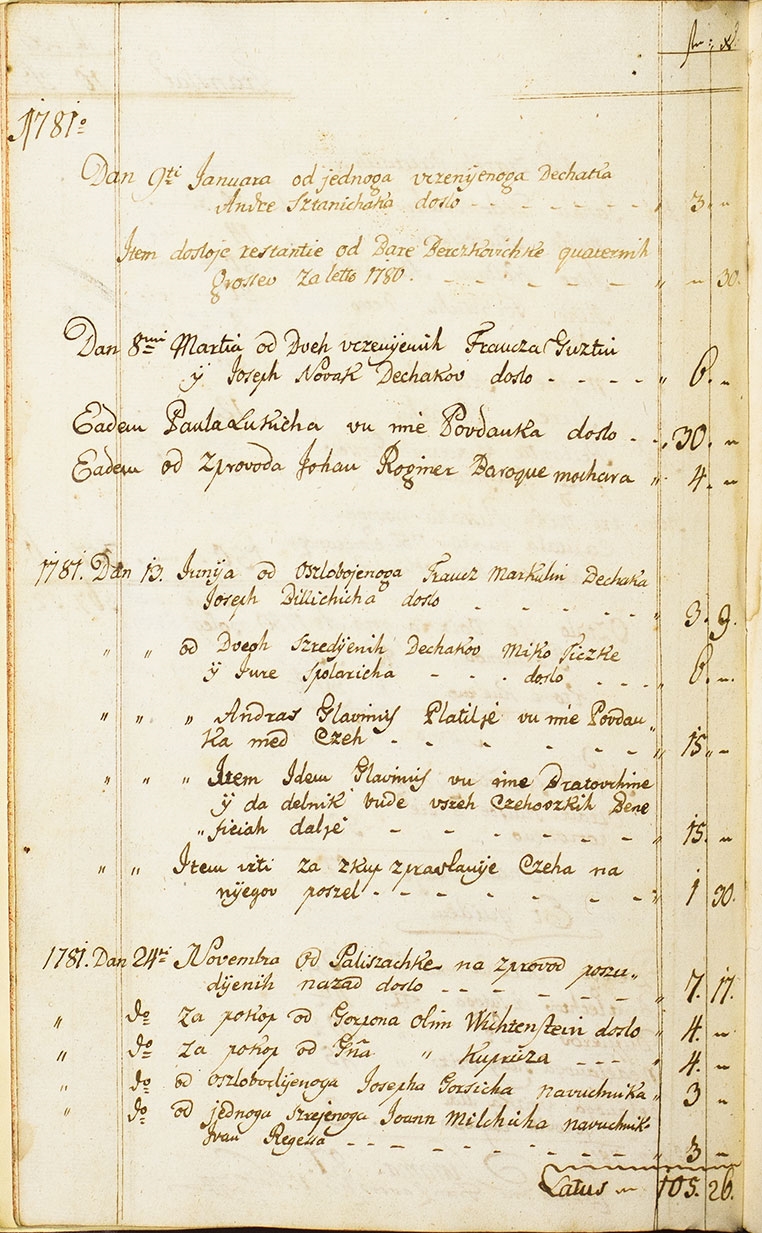 fl: xr
1781o
Dan 9ti Januara od jednoga vczenyenoga Dechaka
Andre Sztanichaka doslo - - - - - - - „ 3. „
Item dosloje restantie od Bare Berczkovichke quaternih
grossev za letto 1780. - - - - - „ „ 30.
Dan 8mi Martia od Dveh vczenyenih Francza Gusztin
ÿ Joseph Novak Dechakov doslo - - - - „ 6. „
Eadem Paula Lukicha vu ime Povdanka doslo - - „ 30. „
Eadem od Zprovoda Johan Roginer Baroque mochara „ 4. „
1781. Dan 13. Junija od oszlobojenoga Francz Markulin Dechaka
Joseph Billichicha doslo - - - - - - „ 3. 9.
„ „ od Dvogh szredjenih Dechakov Miko Ficzke
ÿ Jure Spolaricha - - - doslo - - - „ 6. „
„ „ „ Andras Glavinus Platilje vu ime Povdan„
ka med Czeh - - - - - - - - „ 15 „ „
„ „ „ Item Idem Glavinus vu ime Bratovchine
ÿ da delnik bude vszeh Czehovzkih Bene
„ficiah dalje - - - - - - „ 15. „
„ „ Item iziti za zkup zpravlanje Czeha na
nyegov poszel - - - - - - - - „ 1 30.
1781. Dan 24ti Novembra od Paliszachke na zprovod poszu„
dijenih nazad doslo - - - - - - „ 7. 17.
„ do Za pokop od Goszpona olim Wichtenstein doslo „ 4. „
„ do Za pokop od Gña „ Kuprisza - - - „ 4. „
„ do od oszlobodijenoga Josepha Gorsicha navuchnika „ 3 „
„ do od jednoga szrejenoga Joann Milchicha navuchnik„
Ivan Regessa - - - - - - - - „ 3 „
Latus „ 105. 26.